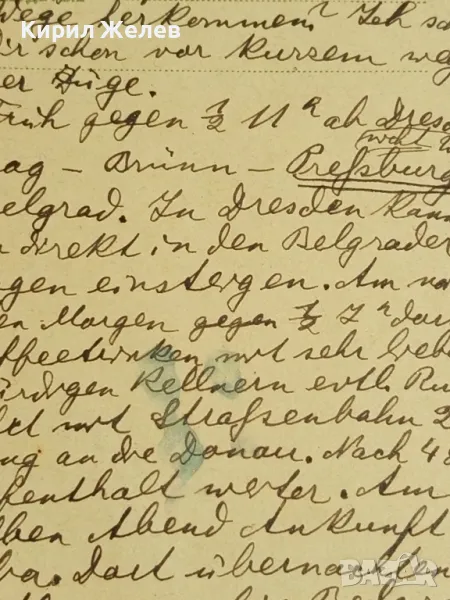 Кирил Желев
Wege herkommen? Ich sch
Dir schon vor kurzem weg
er Züge.
Früh gegen ½ 11ʰ ab Dresd
ag – Brünn – Preßburg
elgrad. In Dresden kann
n direkt in den Belgrader
gen einsteigen. Am
en Morgen gegen ½ 7ʰ dor
ffeetrinken mit sehr liebe
ürdigen Kellnern evtl. Ru
mit Straßenbahn
ng an die Donau. Nach
fenthalt weiter. Am
lben Abend Ankunft
Dort übernachten
BAZAR